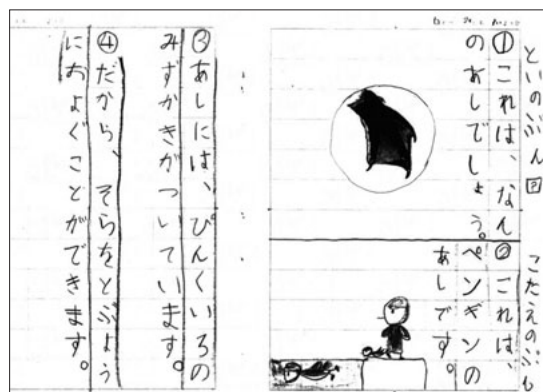 といのぶん問
①これは、なん
のあしでしょう。
こたえのぶん
②これは、
ペンギンの
あしです。
③あしには、ぴんくいろの
みずかきがついています。
④だから、そらをとぶよう
におよぐことができます。